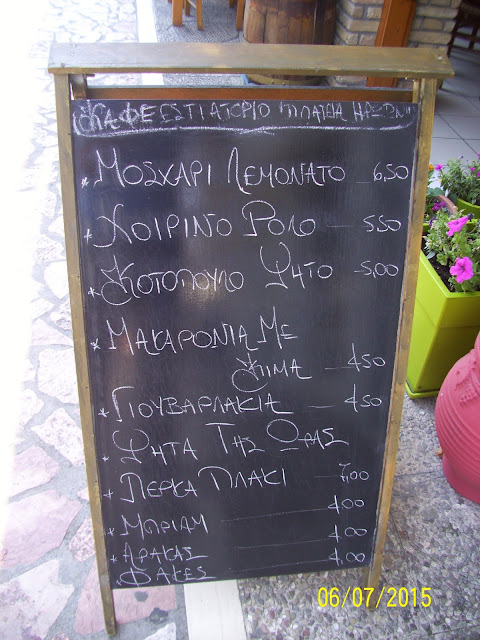 ΚΑΦΕΕΣΤΙΑΤΟΡΙΟ "ΠΛΑΤΕΙΑ ΗΡΩΩΝ"
* ΜΟΣΧΑΡΙ ΛΕΜΟΝΑΤΟ - 6,50
* ΧΟΙΡΙΝΟ ΡΟΛΟ - 550
* ΚΟΤΟΠΟΥΛΟ ΨΗΤΟ - 5,00
* ΜΑΚΑΡΟΝΙΑ ΜΕ
ΚΙΜΑ - 450
* ΓΙΟΥΒΑΡΛΑΚΙΑ - 450
* ΨΗΤΑ ΤΗΣ ΩΡΑΣ
* ΠΕΡΚΑ ΠΛΑΚΙ - 7,00
* ΜΠΡΙΑΜ - 4,00
* ΑΡΑΚΑΣ - 4,00
* ΦΑΚΕΣ - 4,00
06/07/2015